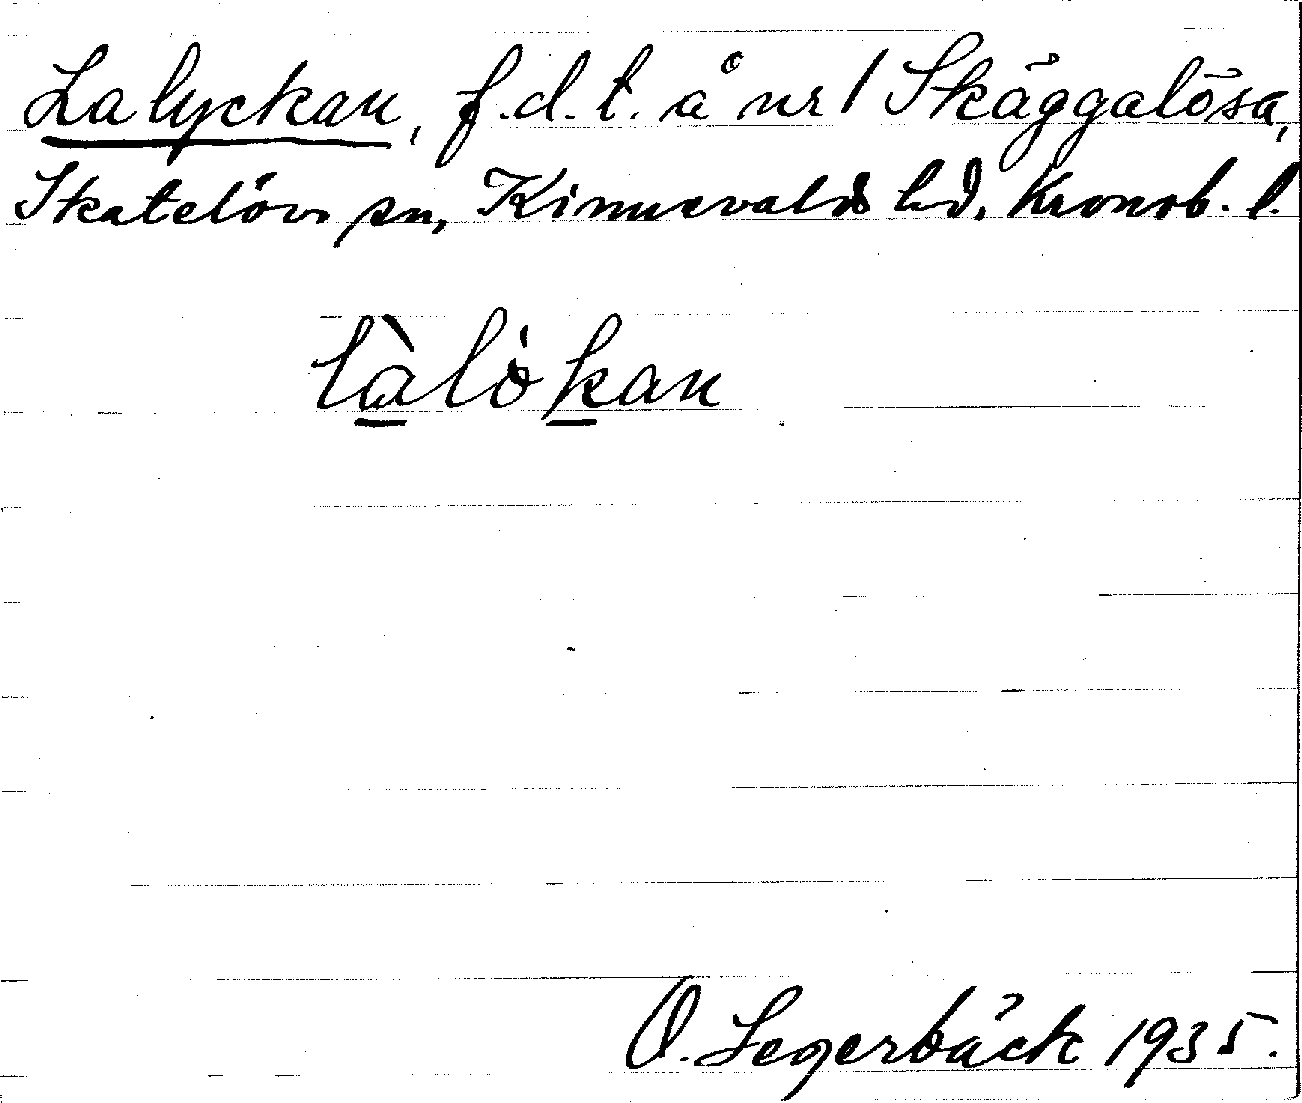 Lalyckan, f.d.t. å nr 1 Skäggalösa,
Skatelövs sn, Kinnevalds hd, Kronob. l.
làlòkan
O. Segerbäck 1935.